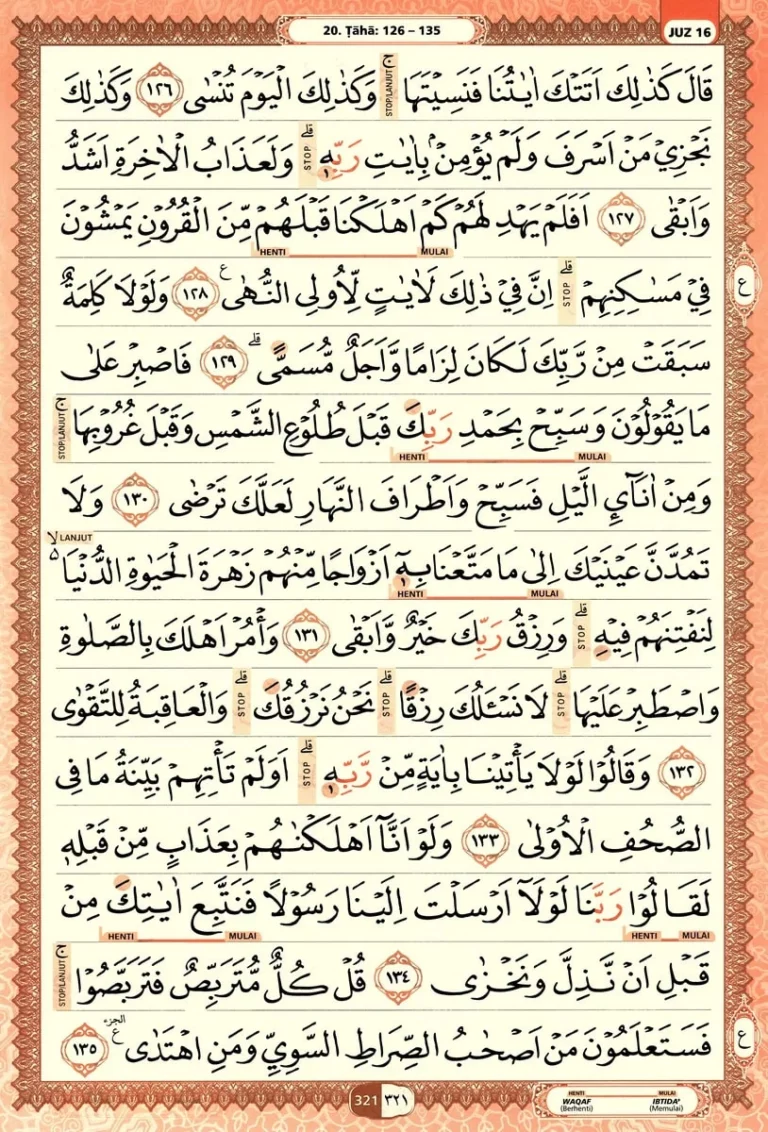 20. Ṭāhā: 126 – 135
JUZ 16
قَالَ كَذٰلِكَ اَتَتْكَ اٰيٰتُنَا فَنَسِيْتَهَا ۚ STOP/LANJUT وَكَذٰلِكَ الْيَوْمَ تُنْسٰى ١٢٦ وَكَذٰلِكَ
نَجْزِيْ مَنْ اَسْرَفَ وَلَمْ يُؤْمِنْۢ بِاٰيٰتِ رَبِّهٖ ۗ STOP وَلَعَذَابُ الْاٰخِرَةِ اَشَدُّ
وَاَبْقٰى ١٢٧ اَفَلَمْ يَهْدِ لَهُمْ كَمْ اَهْلَكْنَا قَبْلَهُمْ مِّنَ الْقُرُوْنِ يَمْشُوْنَ
HENTI MULAI
فِيْ مَسٰكِنِهِمْ ۗ STOP اِنَّ فِيْ ذٰلِكَ لَاٰيٰتٍ لِّاُولِى النُّهٰى ࣖ ١٢٨ وَلَوْلَا كَلِمَةٌ
ع
سَبَقَتْ مِنْ رَّبِّكَ لَكَانَ لِزَامًا وَّاَجَلٌ مُّسَمًّى ۗ ١٢٩ فَاصْبِرْ عَلٰى
مَا يَقُوْلُوْنَ وَسَبِّحْ بِحَمْدِ رَبِّكَ قَبْلَ طُلُوْعِ الشَّمْسِ وَقَبْلَ غُرُوْبِهَا ۚ STOP/LANJUT
HENTI MULAI
وَمِنْ اٰنَاۤئِ الَّيْلِ فَسَبِّحْ وَاَطْرَافَ النَّهَارِ لَعَلَّكَ تَرْضٰى ١٣٠ وَلَا
LANJUT
تَمُدَّنَّ عَيْنَيْكَ اِلٰى مَا مَتَّعْنَا بِهٖٓ اَزْوَاجًا مِّنْهُمْ زَهْرَةَ الْحَيٰوةِ الدُّنْيَا ۙ ٥
HENTI MULAI
لِنَفْتِنَهُمْ فِيْهِ ۗ STOP وَرِزْقُ رَبِّكَ خَيْرٌ وَّاَبْقٰى ١٣١ وَأْمُرْ اَهْلَكَ بِالصَّلٰوةِ
وَاصْطَبِرْ عَلَيْهَا ۗ STOP لَا نَسْـَٔلُكَ رِزْقًا ۗ STOP نَحْنُ نَرْزُقُكَ ۗ STOP وَالْعَاقِبَةُ لِلتَّقْوٰى
١٣٢ وَقَالُوْا لَوْلَا يَأْتِيْنَا بِاٰيَةٍ مِّنْ رَّبِّهٖ ۗ STOP اَوَلَمْ تَأْتِهِمْ بَيِّنَةُ مَا فِى
الصُّحُفِ الْاُوْلٰى ١٣٣ وَلَوْ اَنَّآ اَهْلَكْنٰهُمْ بِعَذَابٍ مِّنْ قَبْلِهٖ
لَقَالُوْا رَبَّنَا لَوْلَآ اَرْسَلْتَ اِلَيْنَا رَسُوْلًا فَنَتَّبِعَ اٰيٰتِكَ مِنْ
HENTI MULAI HENTI MULAI
قَبْلِ اَنْ نَّذِلَّ وَنَخْزٰى ١٣٤ قُلْ كُلٌّ مُّتَرَبِّصٌ فَتَرَبَّصُوْا ۚ STOP/LANJUT
فَسَتَعْلَمُوْنَ مَنْ اَصْحٰبُ الصِّرَاطِ السَّوِيِّ وَمَنِ اهْتَدٰى ࣖ الجزء ١٣٥
ع
321 ٣٢١
HENTI MULAI
WAQAF (Berhenti) IBTIDA' (Memulai)